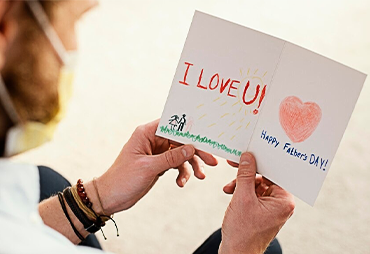 I LOVE U!
Happy Father's DAY!